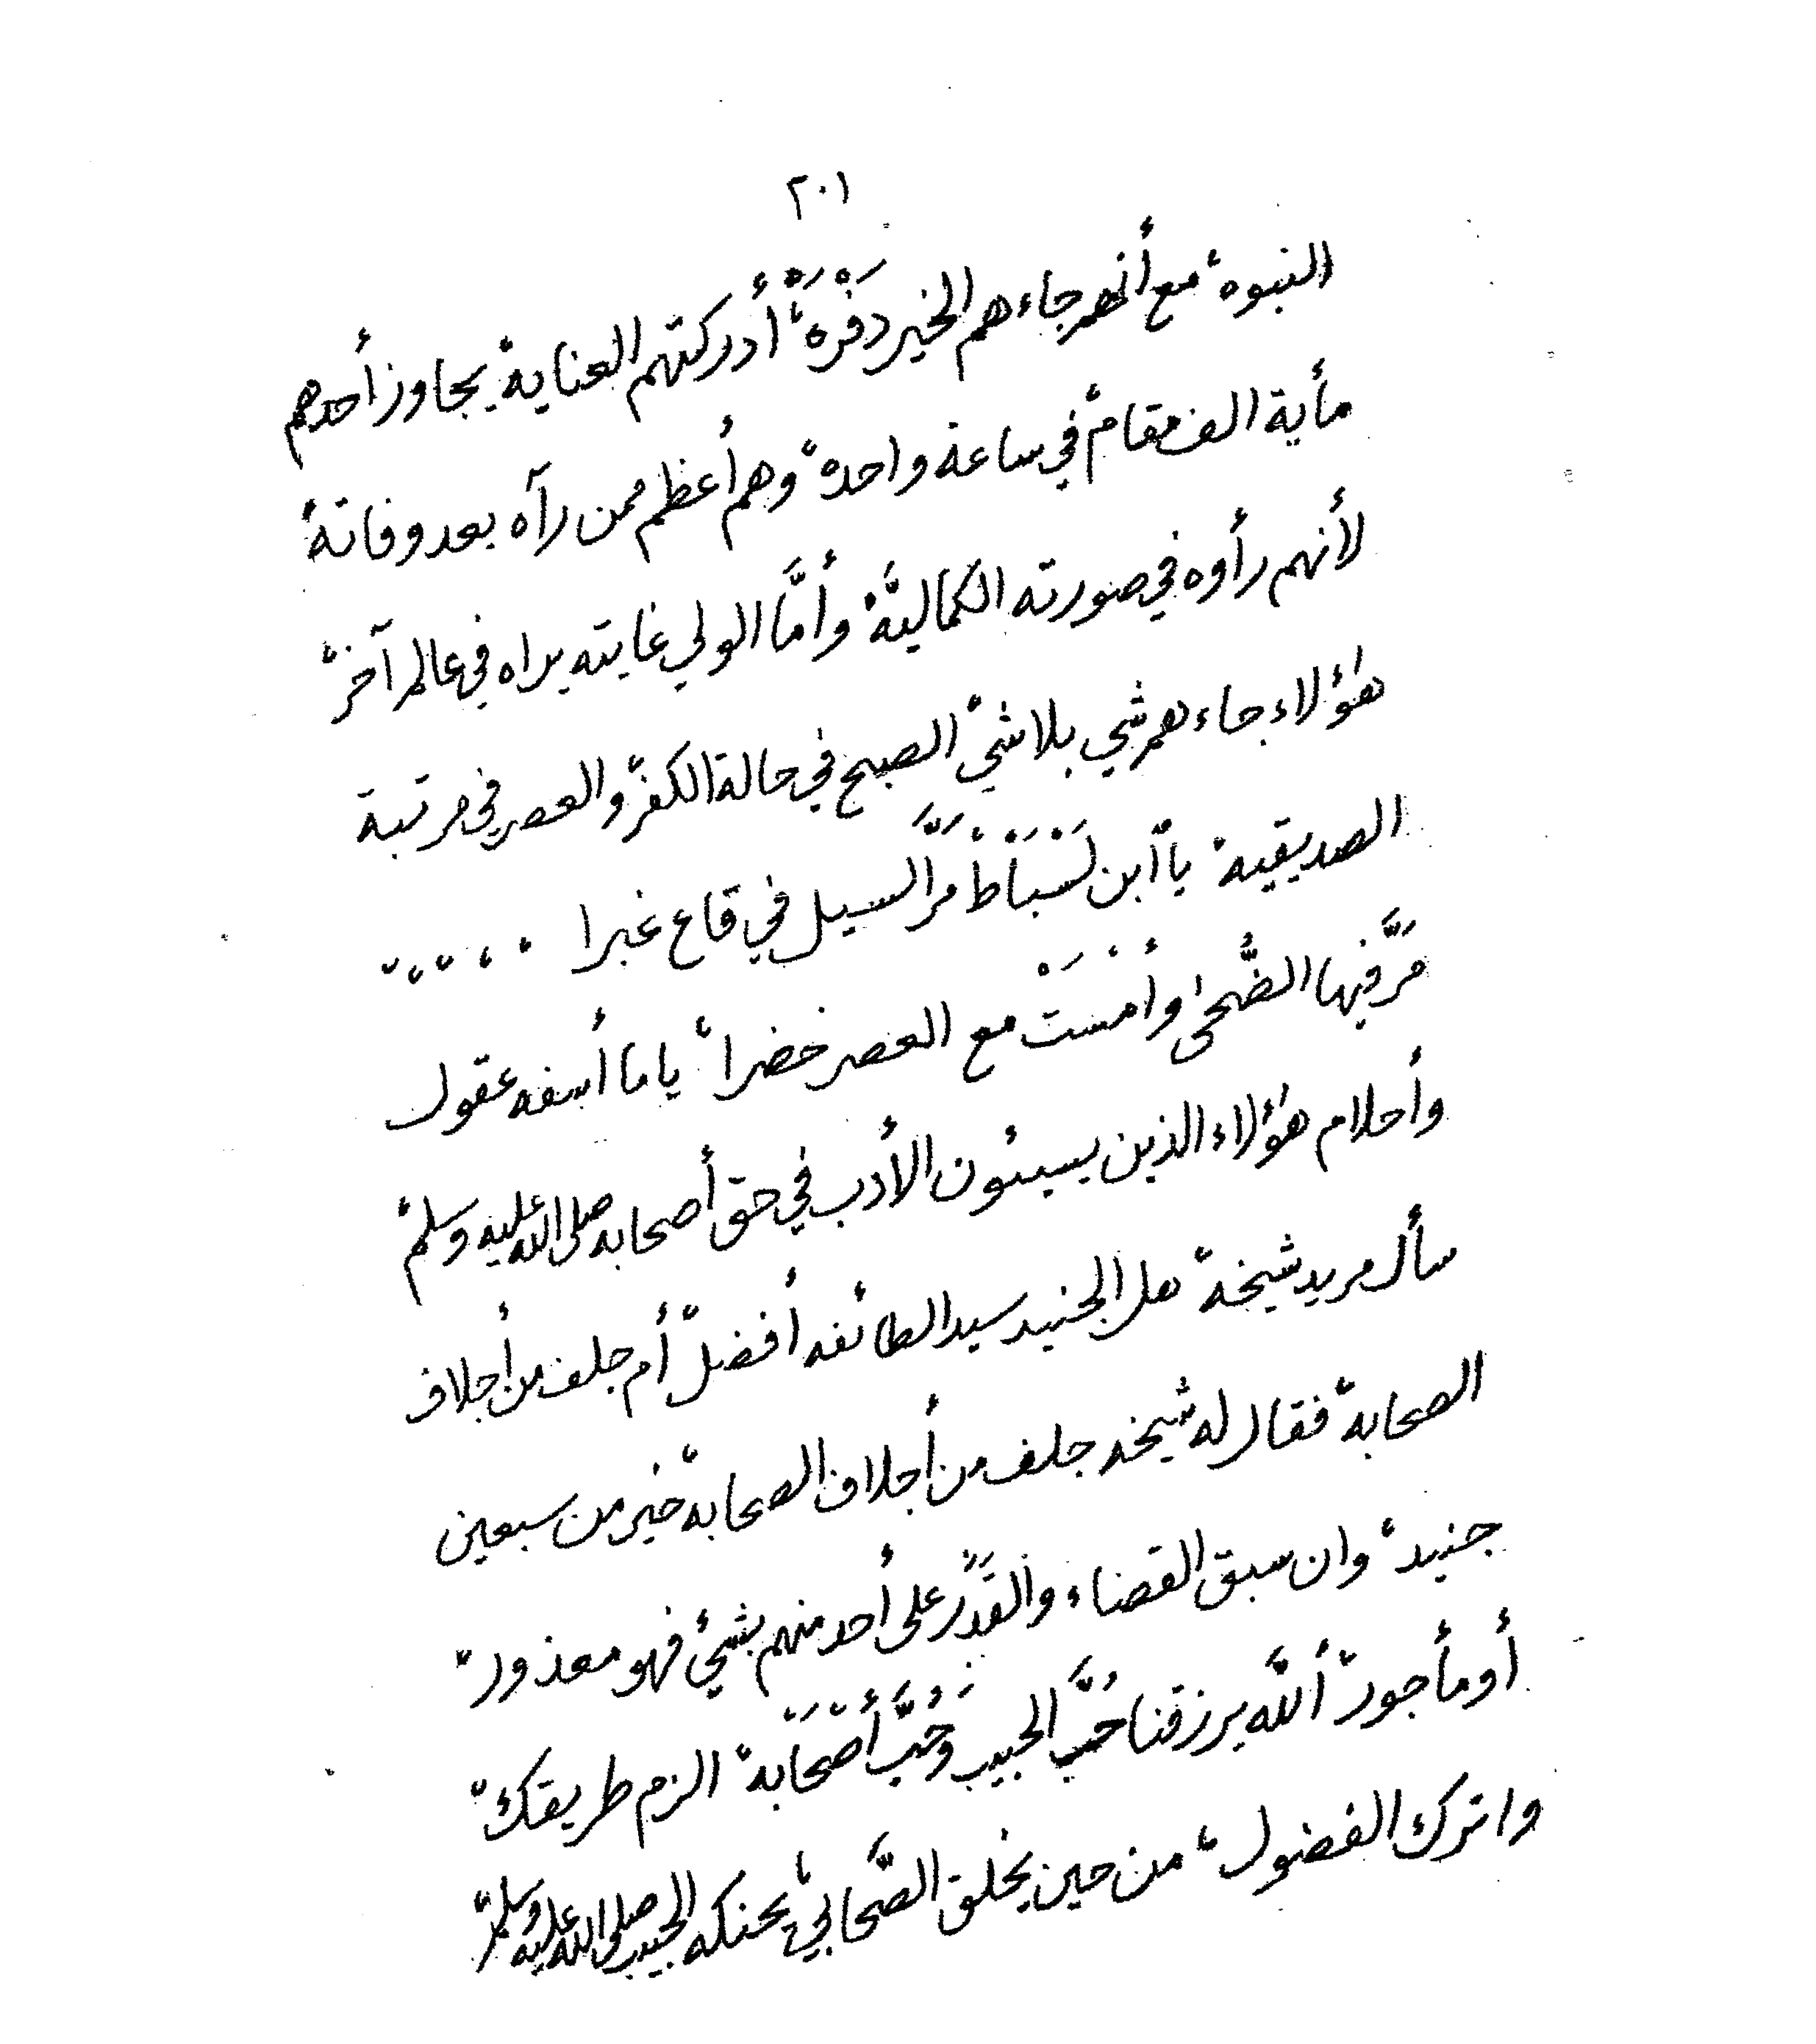 ٢٠١
النبوه، مع أنهم جاءهم الخير دَفْرَهْ، أدركتهم العناية، يجاوز أحدهم
مأية الف مقام، في ساعة واحدة، وهم أعظم ممن رآه بعد وفاته،
لأنهم رأوه في صورته الكماليَّة، وأمَّا الولي غايته يراه في عالم آخر،
هؤلاء جاءهم شي بلا شي، الصبح في حالة الكفر، والعصر في مرتبة
الصديقيه، يا ابن لَسْبَاطْ مَرَّ السيل في قاع غبرا ......
مَرَّ فيها الضُّحى وأمْسَتْ مع العصر خضرا، ياما أسفه عقول
وأحلام هؤلاء الذين يسيئون الأدب في حق أصحابه صلى الله عليه وسلم،
سأل مريد شيخه، هل الجنيد سيد الطائفه أفضل، أم جلف من أجلاف
الصحابه، فقال له شيخه جلف من أجلاف الصحابه، خير من سبعين
جنيد، وان سبق القضاء والقَدَر على أحد منهم بشيئ فهو معذور،
أو مأجور، أللَّه يرزقنا حُبَّ الحبيب وَحُبَّ أصْحَابَهْ، الزم طريقك،
واترك الفضول، من حين يخلق الصَّحابي، يحنكه الحبيب صلى الله عليه وسلم،